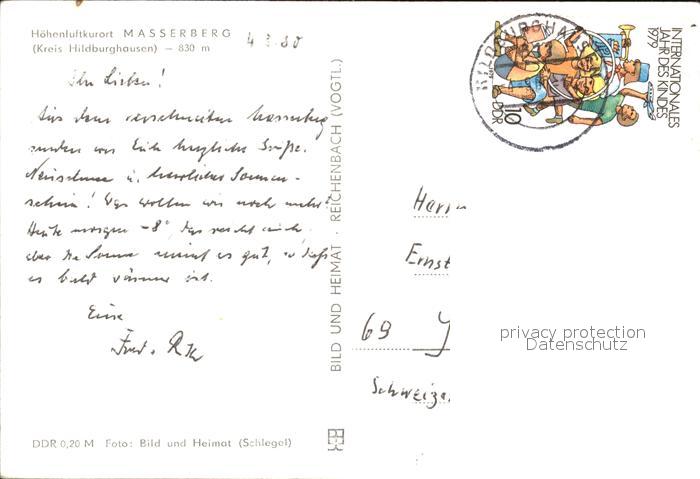 Höhenluftkurort MASSERBERG
(Kreis Hildburghausen) – 830 m
4 3. 80
Ihr Lieben!
Aus dem verschneiten Masserberg
senden wir Euch herzliche Grüße.
Neuschnee u. herrlicher Sonnen-
schein! Was wollen wir noch mehr?
Heute morgen -8°, das reicht auch.
aber die Sonne meint es gut, so daß
es bald wärmer ist.
Eure
Fred
BILD UND HEIMAT · REICHENBACH (VOGTL.)
DDR 0,20 M Foto: Bild und Heimat (Schlegel)
INTERNATIONALES
JAHR DES KINDES
1979
10
DDR
HILDBURGHAUSEN
Herrn
Ernst
69 J
Schweiza
privacy protection
Datenschutz